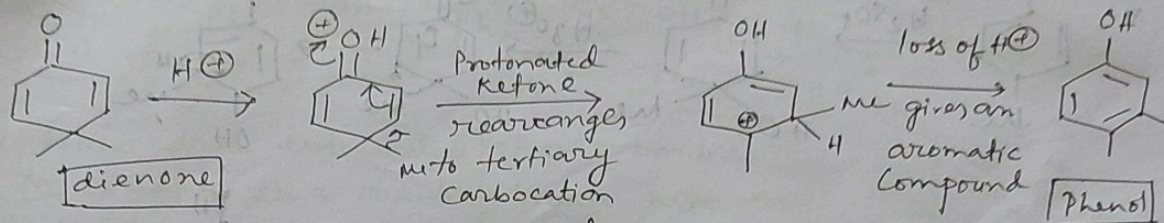 O
H⊕
dienone
⊕
OH
Protonated
Ketone
rearranges
into tertiary
Carbocation
OH
⊕
Me
H
loss of H⊕
gives an
aromatic
Compound
OH
Phenol